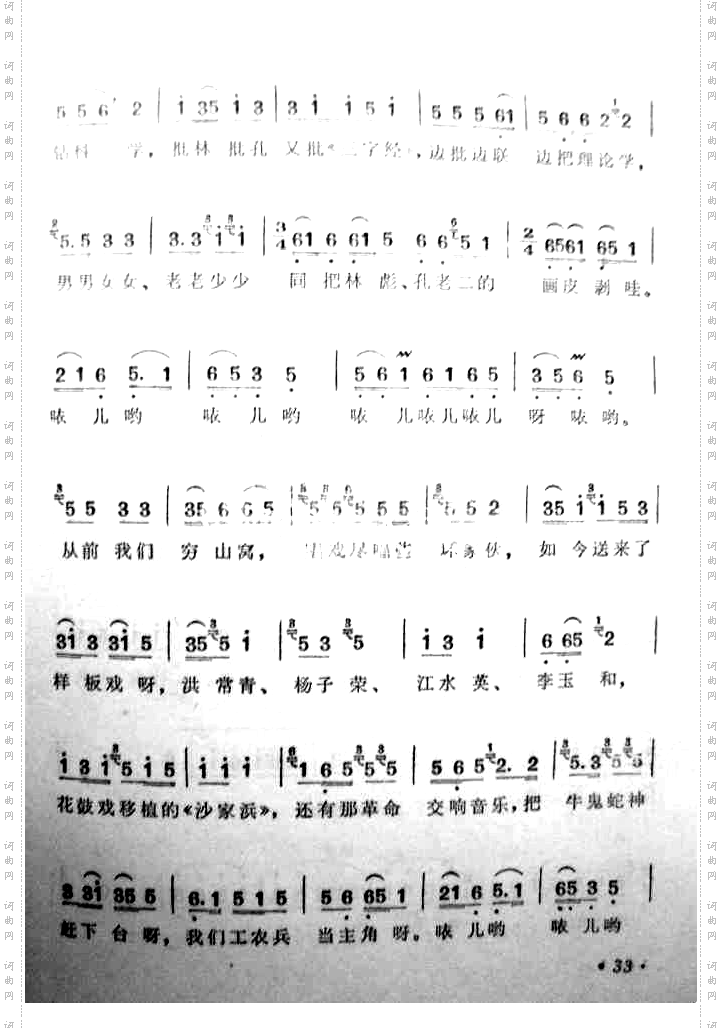 5 5 6 2 | i 35 i 3 | 3 i i 5 i | 5 5 5 61 | 5 6 6 2 2 |
学, 批林 批孔 又批《三字经》, 边批边联 边把理论学,
5.5 3 3 | 3.3 i i | 3/4 61 6 61 5 6 6 5 1 | 2/4 6561 65 1 |
男男女女、 老老少少 同 把林 彪、孔老二的 画皮 剥 哇。
2 1 6 5. 1 | 6 5 3 5 | 5 6 1 6 1 6 5 | 3 5 6 5 |
咴 儿 哟 咴 儿 哟 咴 儿咴儿咴儿 呀 咴 哟。
5 5 3 3 | 35 6 6 5 | 5 5 5 5 5 | 5 5 2 | 35 i i 5 3 |
从前 我们 穷 山 窝, 伙, 如 今送来了
3i 3 3i 5 | 35 5 i | 5 3 5 | i 3 i | 6 65 2 |
样 板戏 呀, 洪 常青、 杨子 荣、 江水 英、 李玉 和,
i 3 i 5 i 5 | i i i | 1 6 5 5 5 | 5 6 5 2. 2 | 5.3 5 5 |
花鼓戏移植的《沙家浜》, 还有那革命 交响音乐,把 牛鬼蛇神
3 3i 35 5 | 6.1 5 1 5 | 5 6 65 1 | 21 6 5.1 | 65 3 5 |
赶下 台 呀, 我们工农兵 当主角 呀。 咴 儿哟 咴 儿 哟
· 33 ·
词曲网